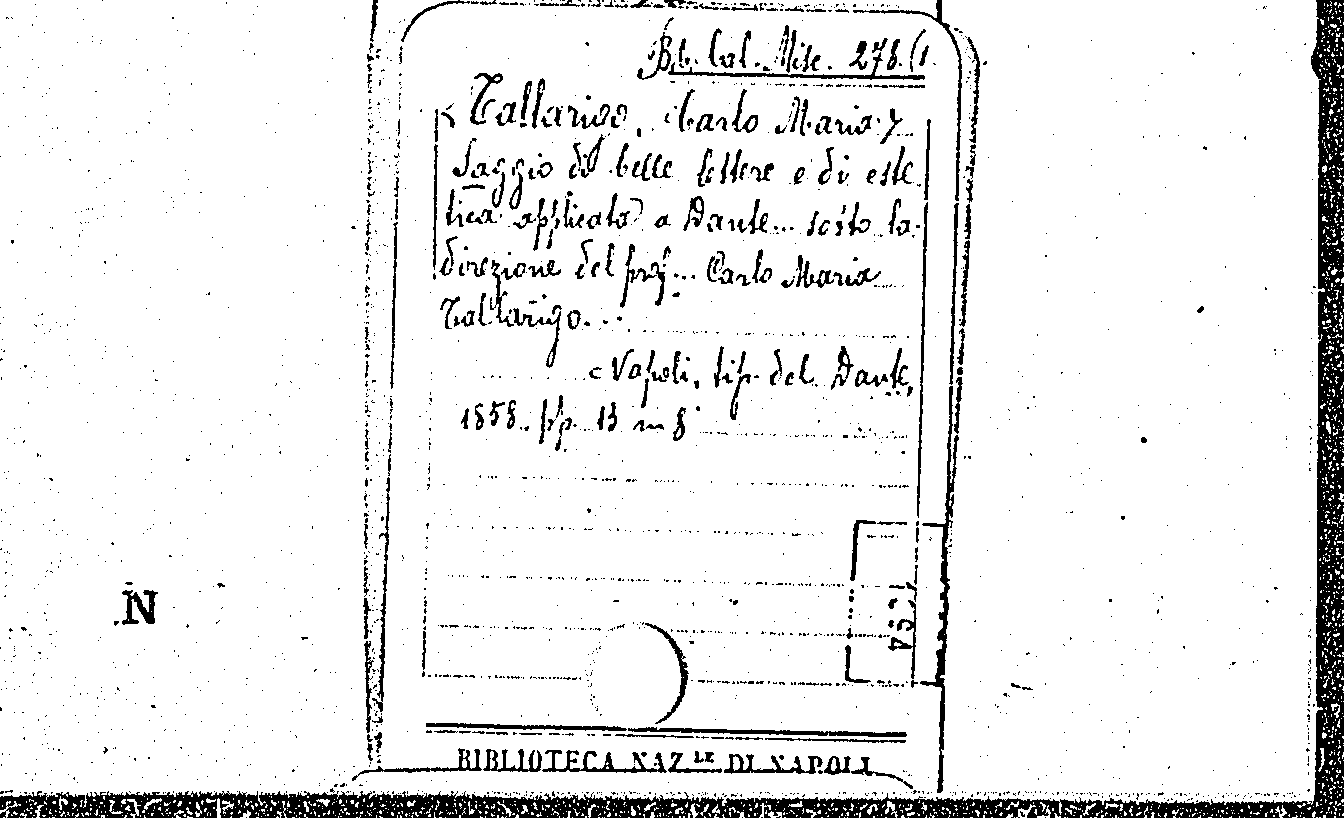 Bib. Cal. Misc. 278. (1
< Tallarigo, Carlo Maria >
Saggio di belle lettere e di este
tica applicata a Dante... sotto la
direzione del prof... Carlo Maria
Tallarigo...
Napoli, tip. del Dante,
1858. pp. 13 in 8°
N
BIBLIOTECA NAZ.LE DI NAPOLI